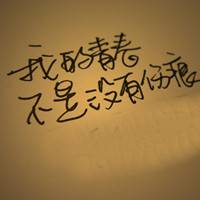 我的青春
不是没有伤痕